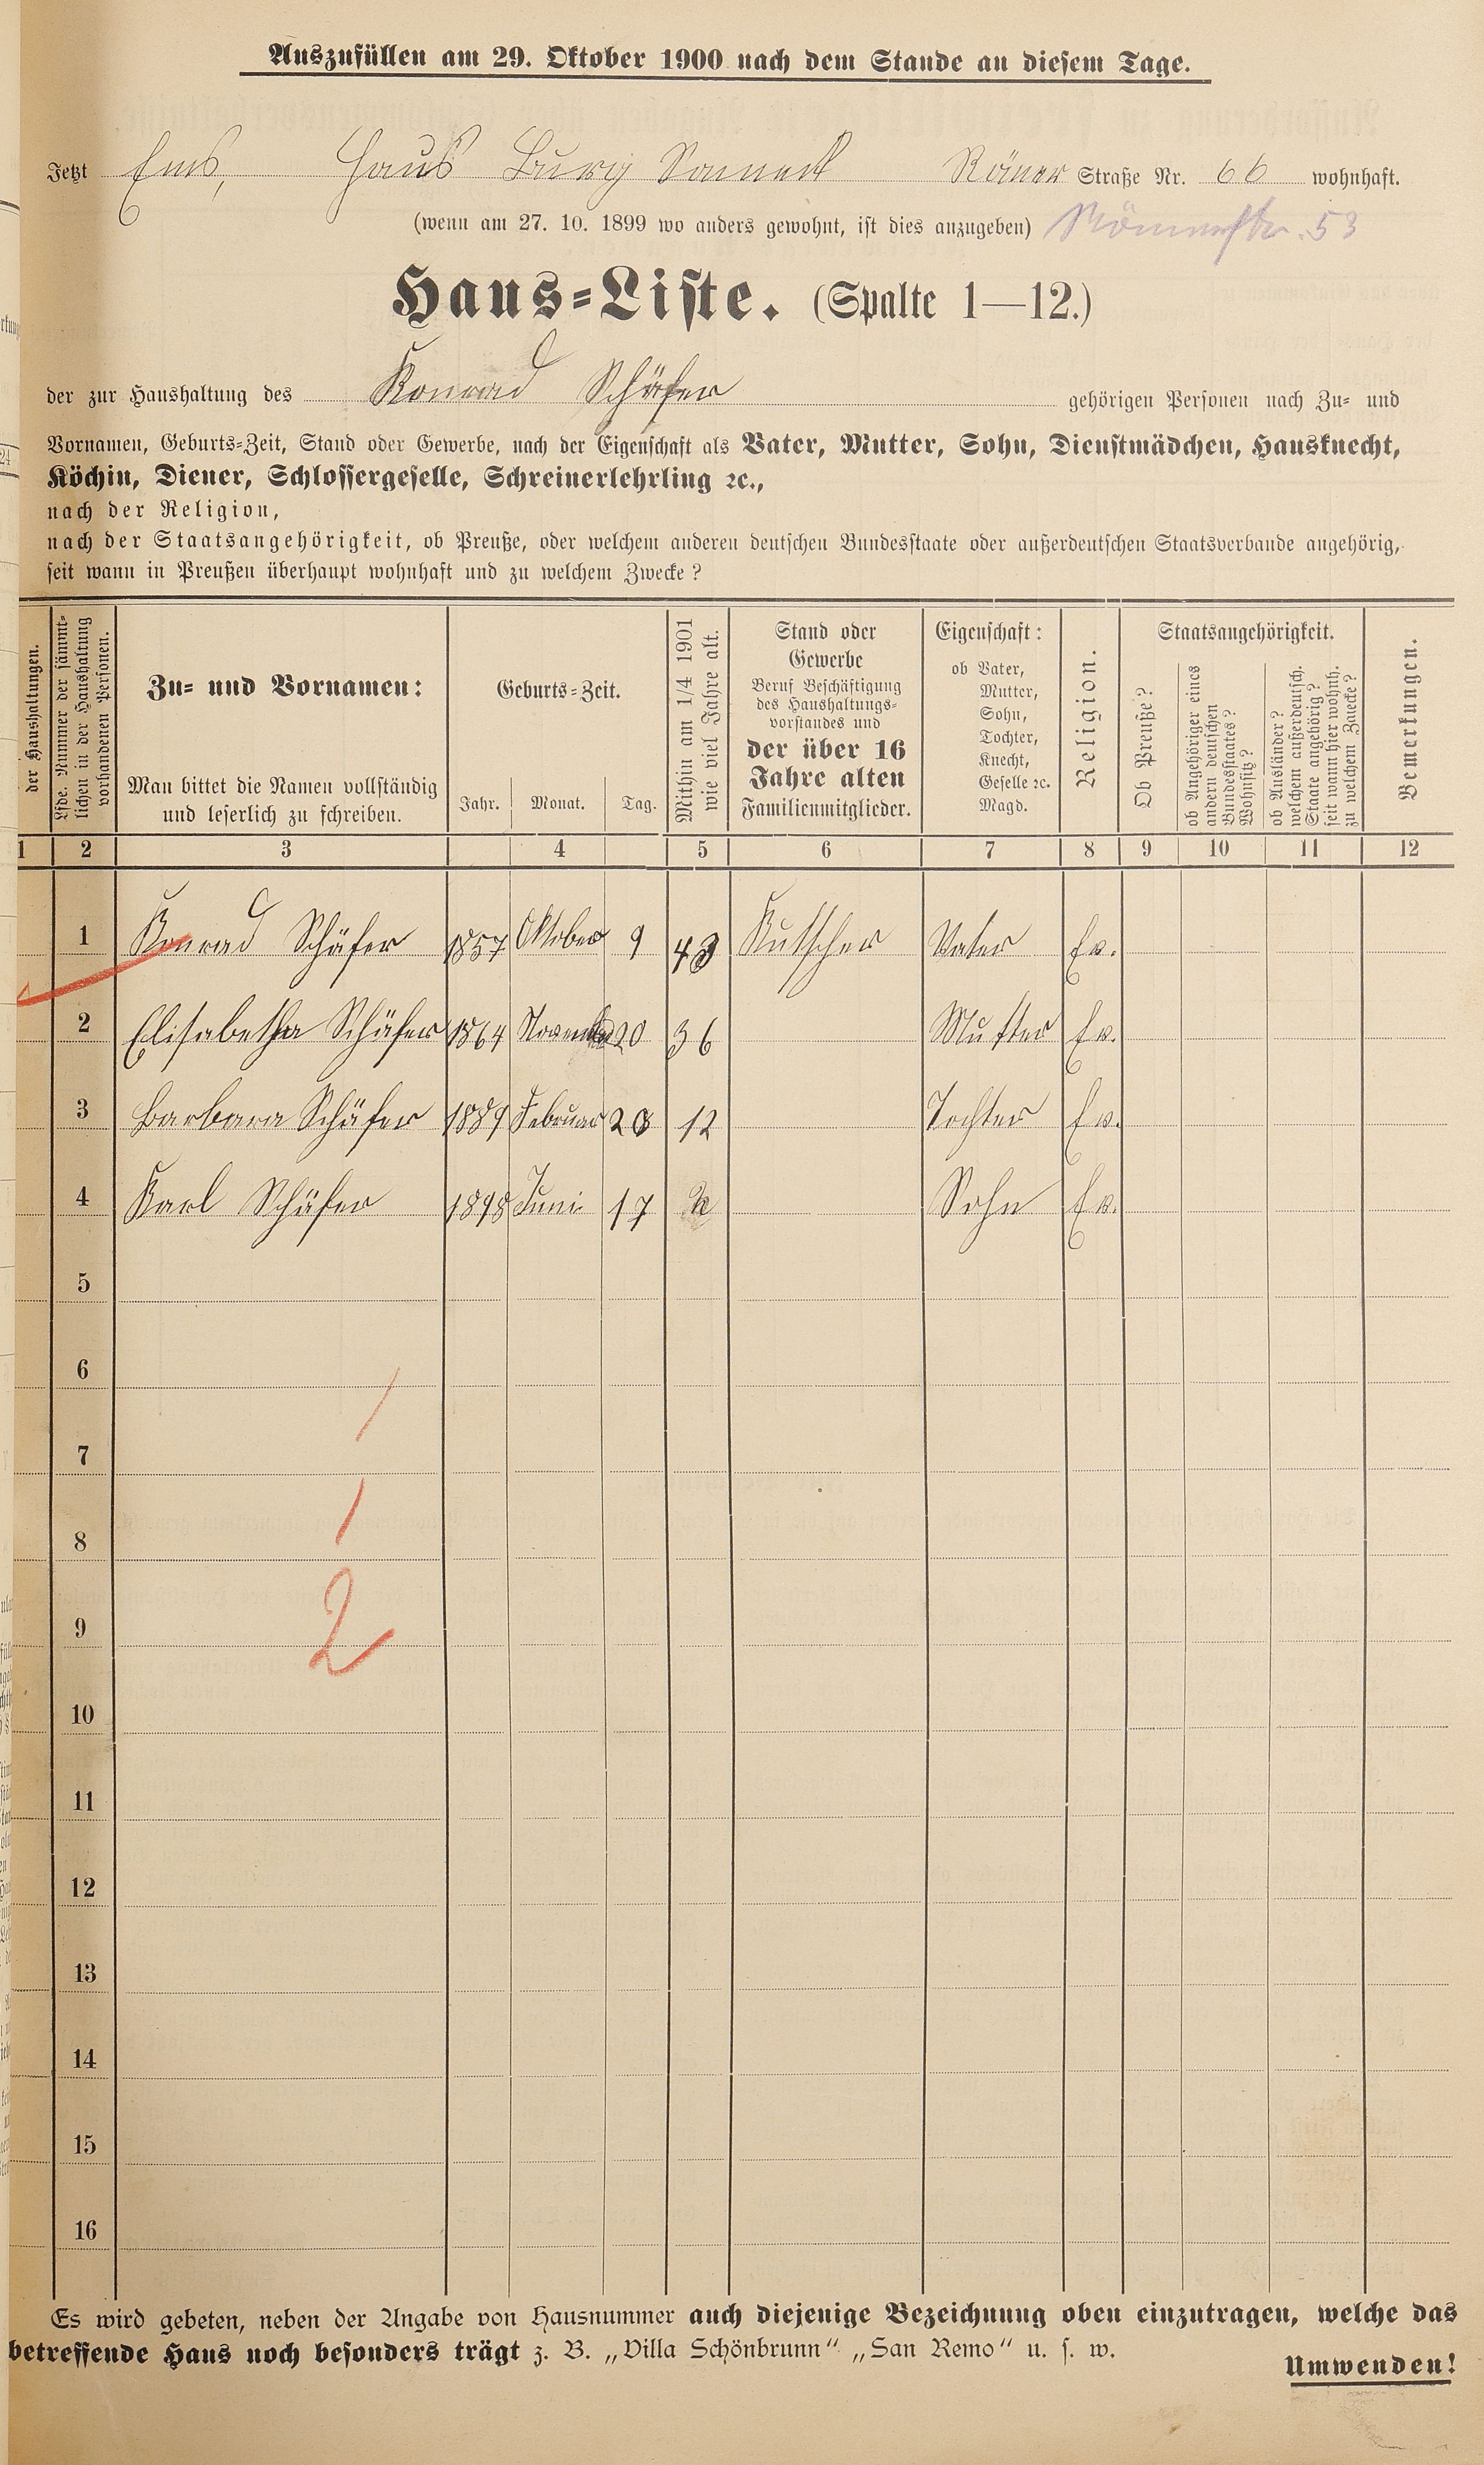 Auszufüllen am 29. Oktober 1900 nach dem Stande an diesem Tage.
Jetzt Ems, Haus Burg Sooneck Römer Straße Nr. 66 wohnhaft.
(wenn am 27. 10. 1899 wo anders gewohnt, ist dies anzugeben) Römerstr. 53
Haus=Liste. (Spalte 1—12.)
der zur Haushaltung des Konrad Schäfer gehörigen Personen nach Zu= und
Vornamen, Geburts=Zeit, Stand oder Gewerbe, nach der Eigenschaft als Vater, Mutter, Sohn, Dienstmädchen, Hausknecht,
Köchin, Diener, Schlossergeselle, Schreinerlehrling ꝛc.,
nach der Religion,
nach der Staatsangehörigkeit, ob Preuße, oder welchem anderen deutschen Bundesstaate oder außerdeutschen Staatsverbande angehörig,
seit wann in Preußen überhaupt wohnhaft und zu welchem Zwecke?
der Haushaltungen.
Lfde. Nummer der sämmt=
lichen in der Haushaltung
vorhandenen Personen.
Zu= und Vornamen:
Man bittet die Namen vollständig
und leserlich zu schreiben.
Geburts=Zeit.
Jahr. Monat. Tag.
Mithin am 1/4 1901
wie viel Jahre alt.
Stand oder
Gewerbe
Beruf Beschäftigung
des Haushaltungs=
vorstandes und
der über 16
Jahre alten
Familienmitglieder.
Eigenschaft:
ob Vater,
Mutter,
Sohn,
Tochter,
Knecht,
Geselle ꝛc.
Magd.
Religion.
Staatsangehörigkeit.
Ob Preuße?
ob Angehöriger eines
andern deutschen
Bundesstaates?
Wohnsitz?
ob Ausländer?
welchem außerdeutsch.
Staate angehörig?
seit wann hier wohnh.
zu welchem Zwecke?
Bemerkungen.
1 2 3 4 5 6 7 8 9 10 11 12
1 Konrad Schäfer 1857 Oktober 9 43 Kutscher Vater Ev.
2 Elisabetha Schäfer 1864 November 20 36 Mutter Ev.
3 Barbara Schäfer 1889 Februar 28 12 Tochter Ev.
4 Karl Schäfer 1898 Juni 17 2 Sohn Ev.
5
6
1
7
1
8
9
2
10
11
12
13
14
15
16
Es wird gebeten, neben der Angabe von Hausnummer auch diejenige Bezeichnung oben einzutragen, welche das
betreffende Haus noch besonders trägt z. B. „Villa Schönbrunn“ „San Remo“ u. s. w.
Umwenden!